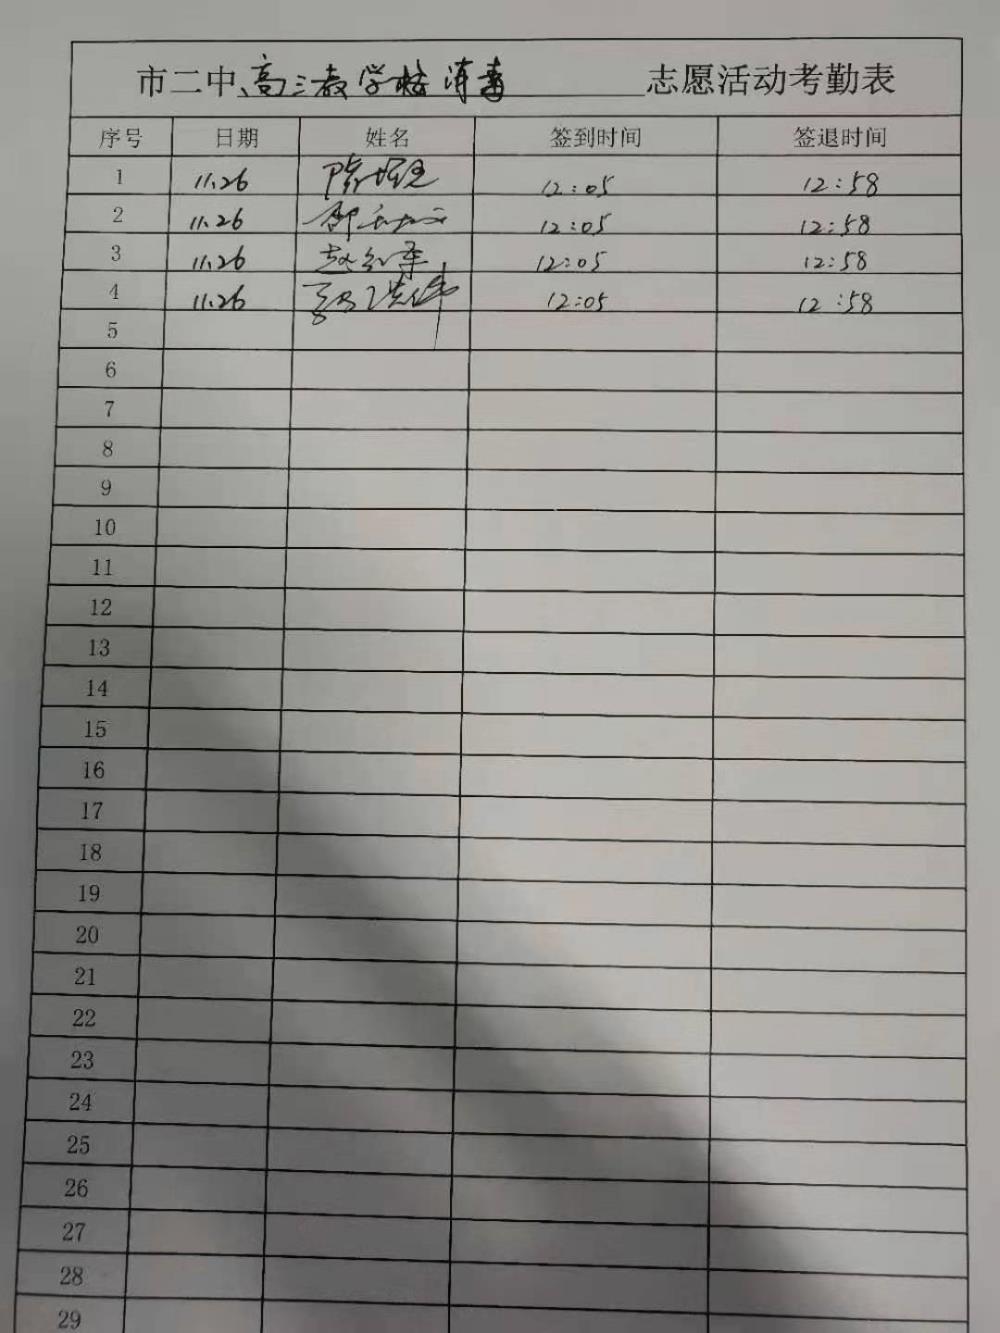 市二中、高三教学楼消毒 志愿活动考勤表
序号 日期 姓名 签到时间 签退时间
1 11.26 12:05 12:58
2 11.26 12:05 12:58
3 11.26 赵红军 12:05 12:58
4 11.26 12:05 12:58
5
6
7
8
9
10
11
12
13
14
15
16
17
18
19
20
21
22
23
24
25
26
27
28
29